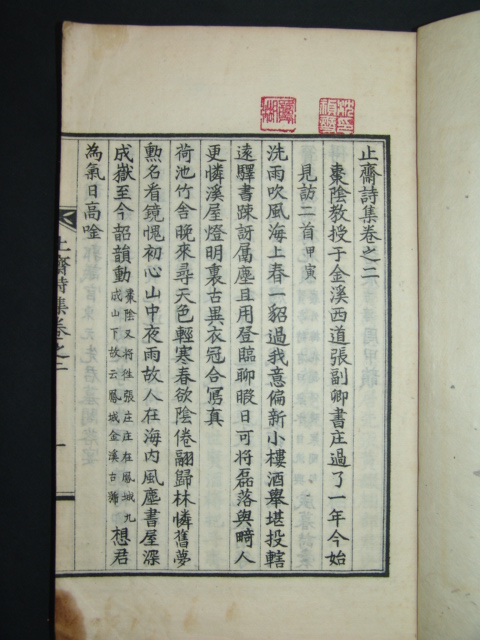 止齋詩集卷之二
棗陰教授于金溪西道張副卿書庄過了一年今始
見訪二首甲寅
洗雨吹風海上春一貂過我意偏新小樓酒舉堪投轄
遠驛書踈訝屬塵且用登臨聊暇日可将磊落與畸人
更憐溪屋燈明裏古異衣冠合寫真
荷池竹舍晚來尋天色輕寒春欲陰倦翮歸林憐舊夢
勲名看鏡愧初心山中夜雨故人在海内風塵書屋深
成嶽至今韶韻動棗陰又将徃張庄庄在鳳城九成山下故云鳳城金溪古蹟想君
為氣日高唫
止齋詩集卷之二
一